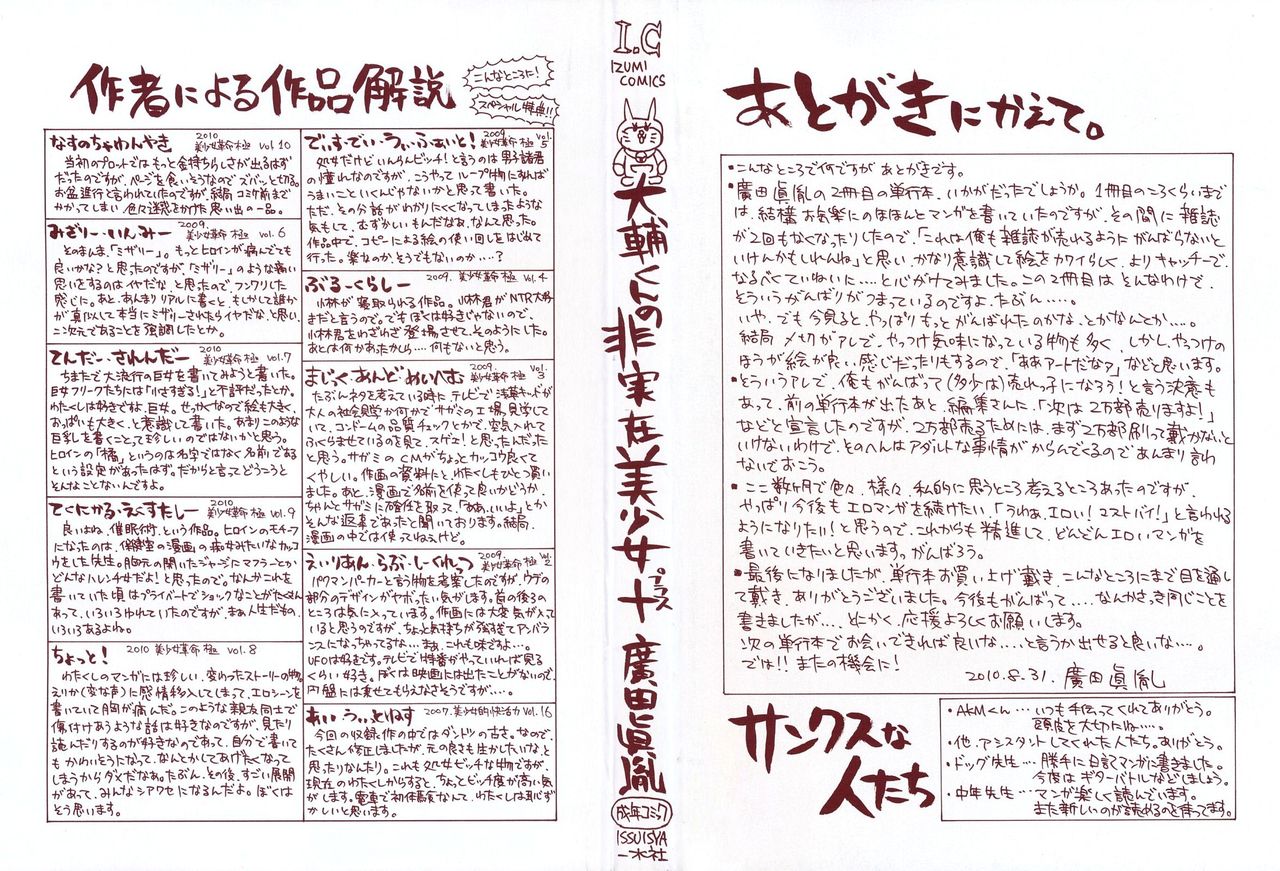 作者による作品解説
こんなところに!
スペシャル特典!!
なすのちゃわんやき
2010
美少女革命 極 vol.10
当初のプロットではもっと金持ちらしさが出るはず
だったのですが、ページを食いそうなのでズバッと切る。
お盆進行と言われていたのですが、結局コミケ前まで
かかってしまい、色々迷惑をかけた思い出の一品。
みざりー・いんみー
2009.
美少女革命 極 vol.6
そのまんま、「ミザリー」。もっとヒロインが病んでても
良いかな?と思ったのですが、「ミザリー」のような痛い
思いをするのはイヤだな、と思ったので、フンワリした
感じに。あと、あんまりリアルに書くと、もしかして誰か
が真似して本当にミザリーされたらイヤだな、と思い、
二次元であることを強調したとか。
てんだー・されんだー
2010
美少女革命 極 vol.7
ちまたで大流行の巨女を書いてみようと書いた。
巨女フリークたちには「小さすぎる!」と不評だったとか。
わたくしは好きですよ、巨女。せっかくなので絵も大きく、
おっぱいも大きく、と意識して書いた。あまりこのような
巨乳を書くことって珍しいのではないかと思う。
ヒロインの「橘」というのは名字ではなく名前である
という設定があったはず。だからと言ってどうこうと
そんなことないんですよ。
てくにかる・えくすたしー
2010
美少女革命 極 vol.9
良いよね、催眠術。という作品。ヒロインのモチーフ
になったのは、保健室の漫画の痴女みたいなカッコ
ウをした先生。胸元の開いたジャージにマフラーとか
どんなハレンチ女だよ!と思ったので。なんかこれを
書いていた頃はプライベートでショックなことがたくさん
あって、いろいろゆれていたのですが、まぁ人生だもの、
いろいろあるよね。
ちょっと!
2010 美少女革命 極 vol.8
わたくしのマンガには珍しい、変わったストーリーの物。
えりか(変な声)に感情移入してしまって、エロシーンを
書いていて胸が痛んだ。このような親友同士で
傷付けあうような話は好きなのですが、見たり
読んだりするのが好きなのであって、自分で書いて
もかわいそうになって、なんとかしてあげたくなって
しまうからダメだなぁ。たぶん、その後、すごい展開
があって、みんなシアワセになるんだよ。ぼくは
そう思います。
でぃす・でい・うぃ・ふぁいと!
2009.
美少女革命 極 vol.5
処女だけどいんらんビッチ!と言うのは男子諸君
の憧れなのですが、こうやってループ物にすれば
うまいこといくんじゃないかと思って書いた。
ただ、その分話がわかりたくなってしまったような
気もして、むずかしいもんだなぁ、なんて思った。
作品中で、コピーによる絵の使い回しをはじめて
行った。楽なのか、そうでもないのか‥‥?
ぶるーくらしー
2009. 美少女革命 極 vol.4
小林が寝取られる作品。小林君がNTR大好
きだと言うので。でもぼくは好きじゃないので、
小林君をわざわざ登場させて、そのようにした。
あとは何かあったかしら‥‥何もないと思う。
まじっく・あんど・めいへむ
2009.
美少女革命 極 vol.3
たぶんネタを考えている時に、テレビで浅草キッドが
大人の社会見学か何かでサガミの工場見学して
いて、コンドームの品質チェックとかで、空気入れて
ふくらませているのを見て、スゲェ!と思ったんだった
と思う。サガミのCMがちょっとカッコウ良くて
くやしい。作画の資料にと、わたくしもひとつ買い
ました。あと、漫画で名前を使って良いかどうか、
ちゃんとサガミに確任を取って、「ああ、いいよ」とか
そんな返事であったと聞いております。結局、
漫画の中では使ってねぇけど。
えいりあん・らぶ・しーくれっつ
2009.
美少女革命 極 vol.2
パクマンパーカーと言う物を考案したのですが、ウデの
部分のデザインがヤボったい気がします。首の後ろの
ところは気に入っています。作画には大変気が入って
いると思うのですが、ちょっと気持ちが強すぎてアンバラ
ンスになっちゃってるな‥‥まぁ、これも味ですよ‥‥。
UFOは好きです。テレビで特番がやっていれば見る
くらい好き。ぼくは映画には出たことがないので、
円盤には乗せてもらえなさそうですが‥‥。
あい・うぃっとねす
2007. 美少女的快活力 vol.16
今回の収録作の中ではダントツの古さ。なので、
たくさん修正しましたが、元の良さも生かしたいな、と
思ったりなんたり。これも処女ビッチな物ですが、
現在のわたくしからすると、ちょっとビッチ度が高い気
がします。電車で初体験なんて、わたくしは恥ず
かしいと思います。
I.C
IZUMI
COMICS
大輔くんの非実在美少女十
プラス
廣田眞胤
成年コミック
ISSUISYA
一水社
あとがきにかえて。
・こんなところで何ですが、あとがきです。
・廣田眞胤の2冊目の単行本、いかがだったでしょうか。1冊目のころくらいまで
は、結構お気楽にのほほんとマンガを書いていたのですが、その間に雑誌
が2回もなくなったりしたので、「これは俺も雑誌が売れるようにがんばらないと
いけんかもしれんね」と思い、かなり意識して絵をカワイらしく、よりキャッチーで、
なるべくていねいに‥‥と心がけてみました。この2冊目はそんなわけで、
そういうがんばりがつまっているのですよ、たぶん‥‥。
いや、でも今見ると、やっぱりもっとがんばれたのかな、とかなんとか‥‥。
結局メ切りがアレで、やっつけ気味になっている物も多く、しかし、やっつけの
ほうが絵が良い、感じだったりもするので、「ああアートだなァ」などと思います。
・とういうアレで、俺もがんばって(多少は)売れっ子になろう!と言う決意も
あって、前の単行本が出たあと、編集さんに、「次は2万部売りますよ!」
などと宣言したのですが、2万部売るためには、まず2万部刷って戴かないと
いけないわけで、そのへんはアダルトな事情がからんでくるのであんまり言わ
ないでおこう。
・ここ数ヶ月で色々、様々、私的に思うところ考えるところあったのですが、
やっぱり今後もエロマンガを続けたい、「うわぁ、エロい!コストパイ!」と言われる
ようになりたい!と思うので、これからも精進して、どんどんエロいマンガを
書いていきたいと思います。がんばろう。
・最後になりましたが、単行本お買い上げ戴き、こんなところにまで目を通し
て戴き、ありがとうございました。今後もがんばって‥‥なんかさっき同じことを
書きましたが‥‥とにかく、応援よろしくお願いします。
次の単行本でお会いできれば良いな‥‥と言うか出せると良いな‥‥。
では!! またの機会に!
2010.8.31. 廣田眞胤
サンクスな
人たち
・AKMくん‥‥いつも手伝ってくれてありがとう。
頭皮を大切にね‥‥。
・他、アシスタントしてくれた人たち。ありがとう。
・ドッグ先生‥‥勝手に日記マンガに書きました。
今度はギターバトルなどしましょう。
・中年先生‥‥マンガ楽しく読んでいます。
また新しいのが読めるのを待ってます。